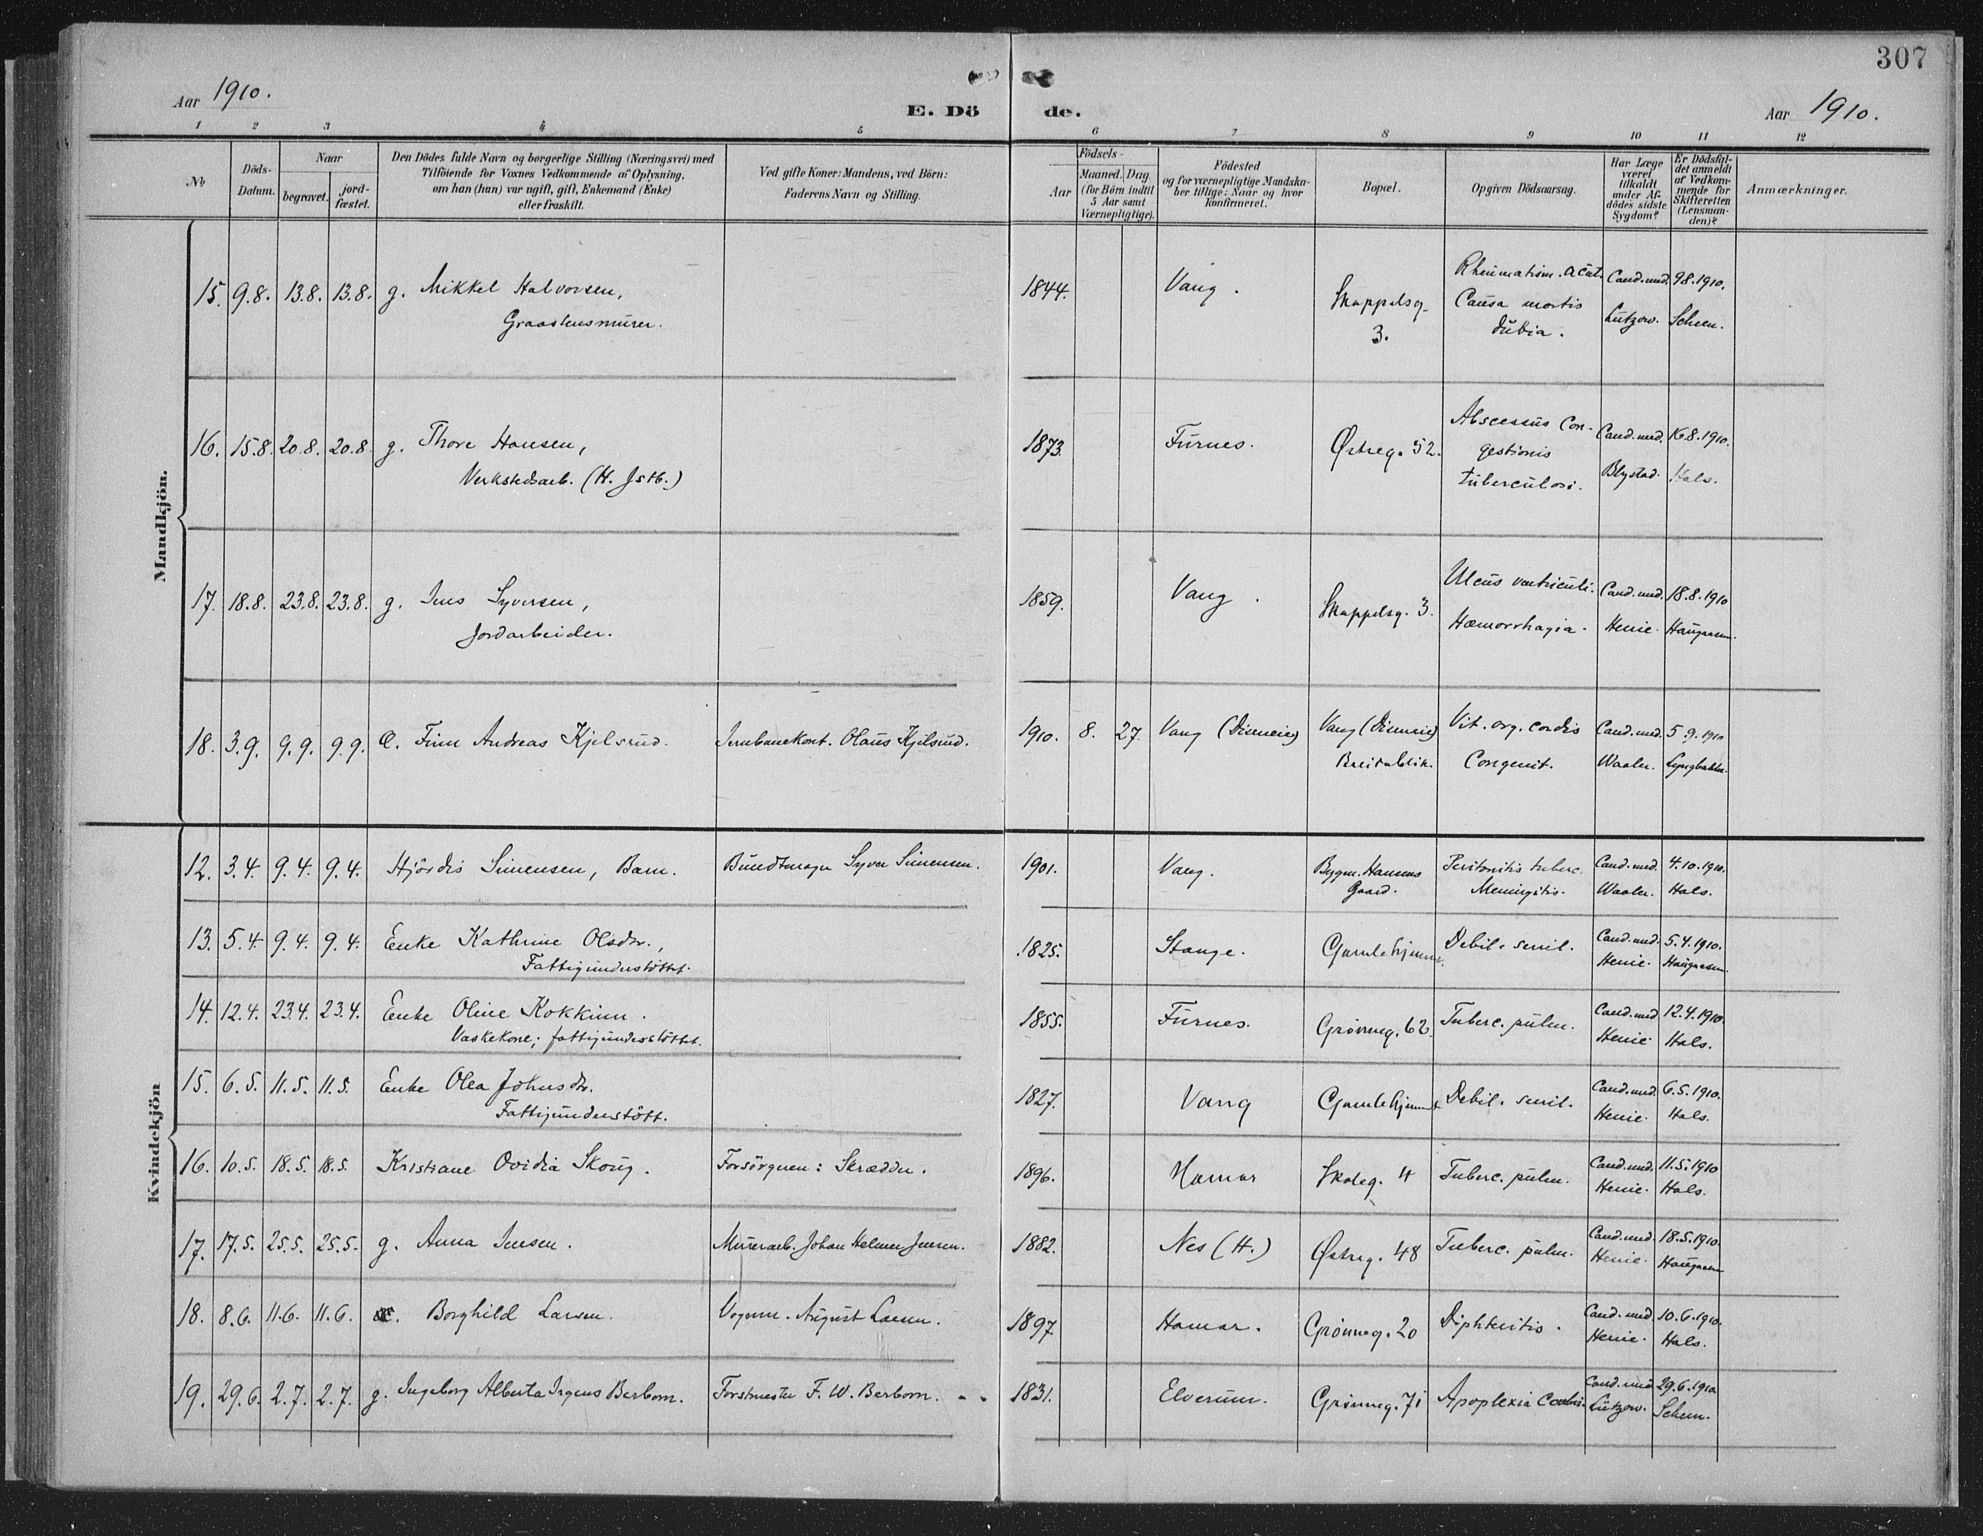 307
Aar 1910.
E. Dö de.
Aar 1910.
1 2 3 4 5 6 7 8 9 10 11 12
No
Döds-Datum.
Naar
begravet. jord-fæstet.
Den Dödes fulde Navn og borgerlige Stilling (Næringsvei) med
Tilföiende for Voxnes Vedkommende af Oplysning,
om han (hun) var ugift, gift, Enkemand (Enke)
eller fraskilt.
Ved gifte Koner: Mandens, ved Börn:
Faderens Navn og Stilling.
Födsels-
Aar
Maaned. Dag
(for Börn indtil
5 Aar samt
Værnepligtige).
Födested
og for værnepligtige Mandska-
ber tillige: Naar og hvor
Konfirmeret.
Bopæl.
Opgiven Dödsaarsag.
Har Læge
været
tilkaldt
under Af-
dödes sidste
Sygdom?
Er Dödsfal-
det anmeldt
af Vedkom-
mende for
Skifteretten
(Lensman-
den)?
Anmærkninger.
Mandkjön.
15. 9.8. 13.8. 13.8. g. Mikkel Halvorsen, 1844. Vang. Skappelsg. Rheumatism. acut. Cand.med. 9.8.1910.
Graastensmurer. 3. Causa mortis Lützow. Scheen.
dubia.
16. 15.8. 20.8. 20.8. g. Thore Hansen, 1873. Furnes. Østreg. 52. Abscessus con- Cand.med. 16.8.1910.
Verkstedsarb. (H. Jstb.) gestionis Blystad. Hals.
tuberculosi.
17. 18.8. 23.8. 23.8. g. Jens Syversen, 1859. Vang. Skappelsg. 3. Ulcus ventriculi. Cand.med. 18.8.1910
Jordarbeider. Hæmorrhagia. Henie. Haugnæss.
18. 3.9. 9.9. 9.9. Finn Andreas Kjelsrud. Jernbanekont. Olaus Kjelsrud. 1910. 8. 27. Vang (Dismeie) Vang (Dismeie) Vit. org. cordis Cand.med. 5.9.1910
Congenit. Waaler. Lyngbakke.
Kvindekjön
12. 3.4. 9.4. 9.4. Hjördis Simensen, Barn. Bundtmager Syver Simensen. 1901. Vang. Bygm. Hansens Peritonitis tuberc. Cand.med. 4.10.1910.
Gaard. Meningitis. Waaler. Hals.
13. 5.4. 9.4. 9.4. Enke Kathrine Olsdtr., 1825. Stange. Gamlehjemmet. Debil. senil. Cand.med. 5.4.1910.
Fattigunderstöttet. Henie. Haugnæss.
14. 12.4. 23.4. 23.4. Enke Oline Kokkinn. 1855. Furnes. Grønneg. 62. Tuberc. pulm. Cand.med. 12.4.1910.
Vaskekone; fattigunderstöttet. Henie. Hals.
15. 6.5. 11.5. 11.5. Enke Olea Johnsdtr. 1827. Vang Gamlehjemmet Debil. senil. Cand.med. 6.5.1910.
Fattigunderstött. Henie. Hals.
16. 10.5. 18.5. 18.5. Kristiane Ovidia Skoug. Forsörgeren: Skrædder. 1896. Hamar Skoleg. 4 Tuberc. pulm. Cand.med. 11.5.1910
Henie. Hals.
17. 17.5. 25.5. 25.5. g. Anna Jensen. Murerarb. Johan Helmer Jensen. 1882. Nes (H.) Østreg. 48 Tuberc. pulm. Cand.med. 18.5.1910.
Henie. Haugnæss
18. 8.6. 11.6. 11.6. Borghild Larsen. Vognm. August Larsen. 1897. Hamar. Grønneg. 20 Diphteritis. Cand.med. 10.6.1910.
Henie. Hals.
19. 29.6. 2.7. 2.7. g. Ingeborg Alberta Irgens Berbom. Forstmester F. W. Berbom. 1831. Elverum. Grønneg. 71 Apoplexia Cerebri. Cand.med. 29.6.1910.
Lützow. Scheen.